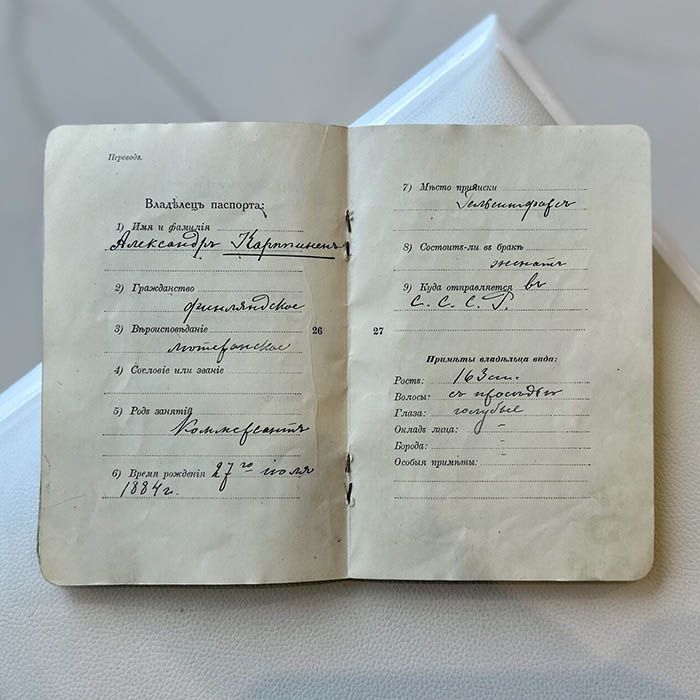 Переводъ.
Владѣлецъ паспорта:
1) Имя и фамилія
Александръ Карппиненъ
2) Гражданство
финляндское
3) Вѣроисповѣданіе
лютеранское
4) Сословіе или званіе
5) Родъ занятій
Коммерсантъ
6) Время рожденія 27го іюля
1884 г.
26
27
7) Мѣсто приписки
Гельсингфорсъ
8) Состоитъ-ли въ бракѣ
женатъ
9) Куда отправляется въ
С. С. С. Р.
Примѣты владѣльца вида:
Ростъ: 163 cm.
Волосы: съ просѣдью
Глаза: голубые
Окладъ лица: -
Борода: -
Особыя примѣты: -